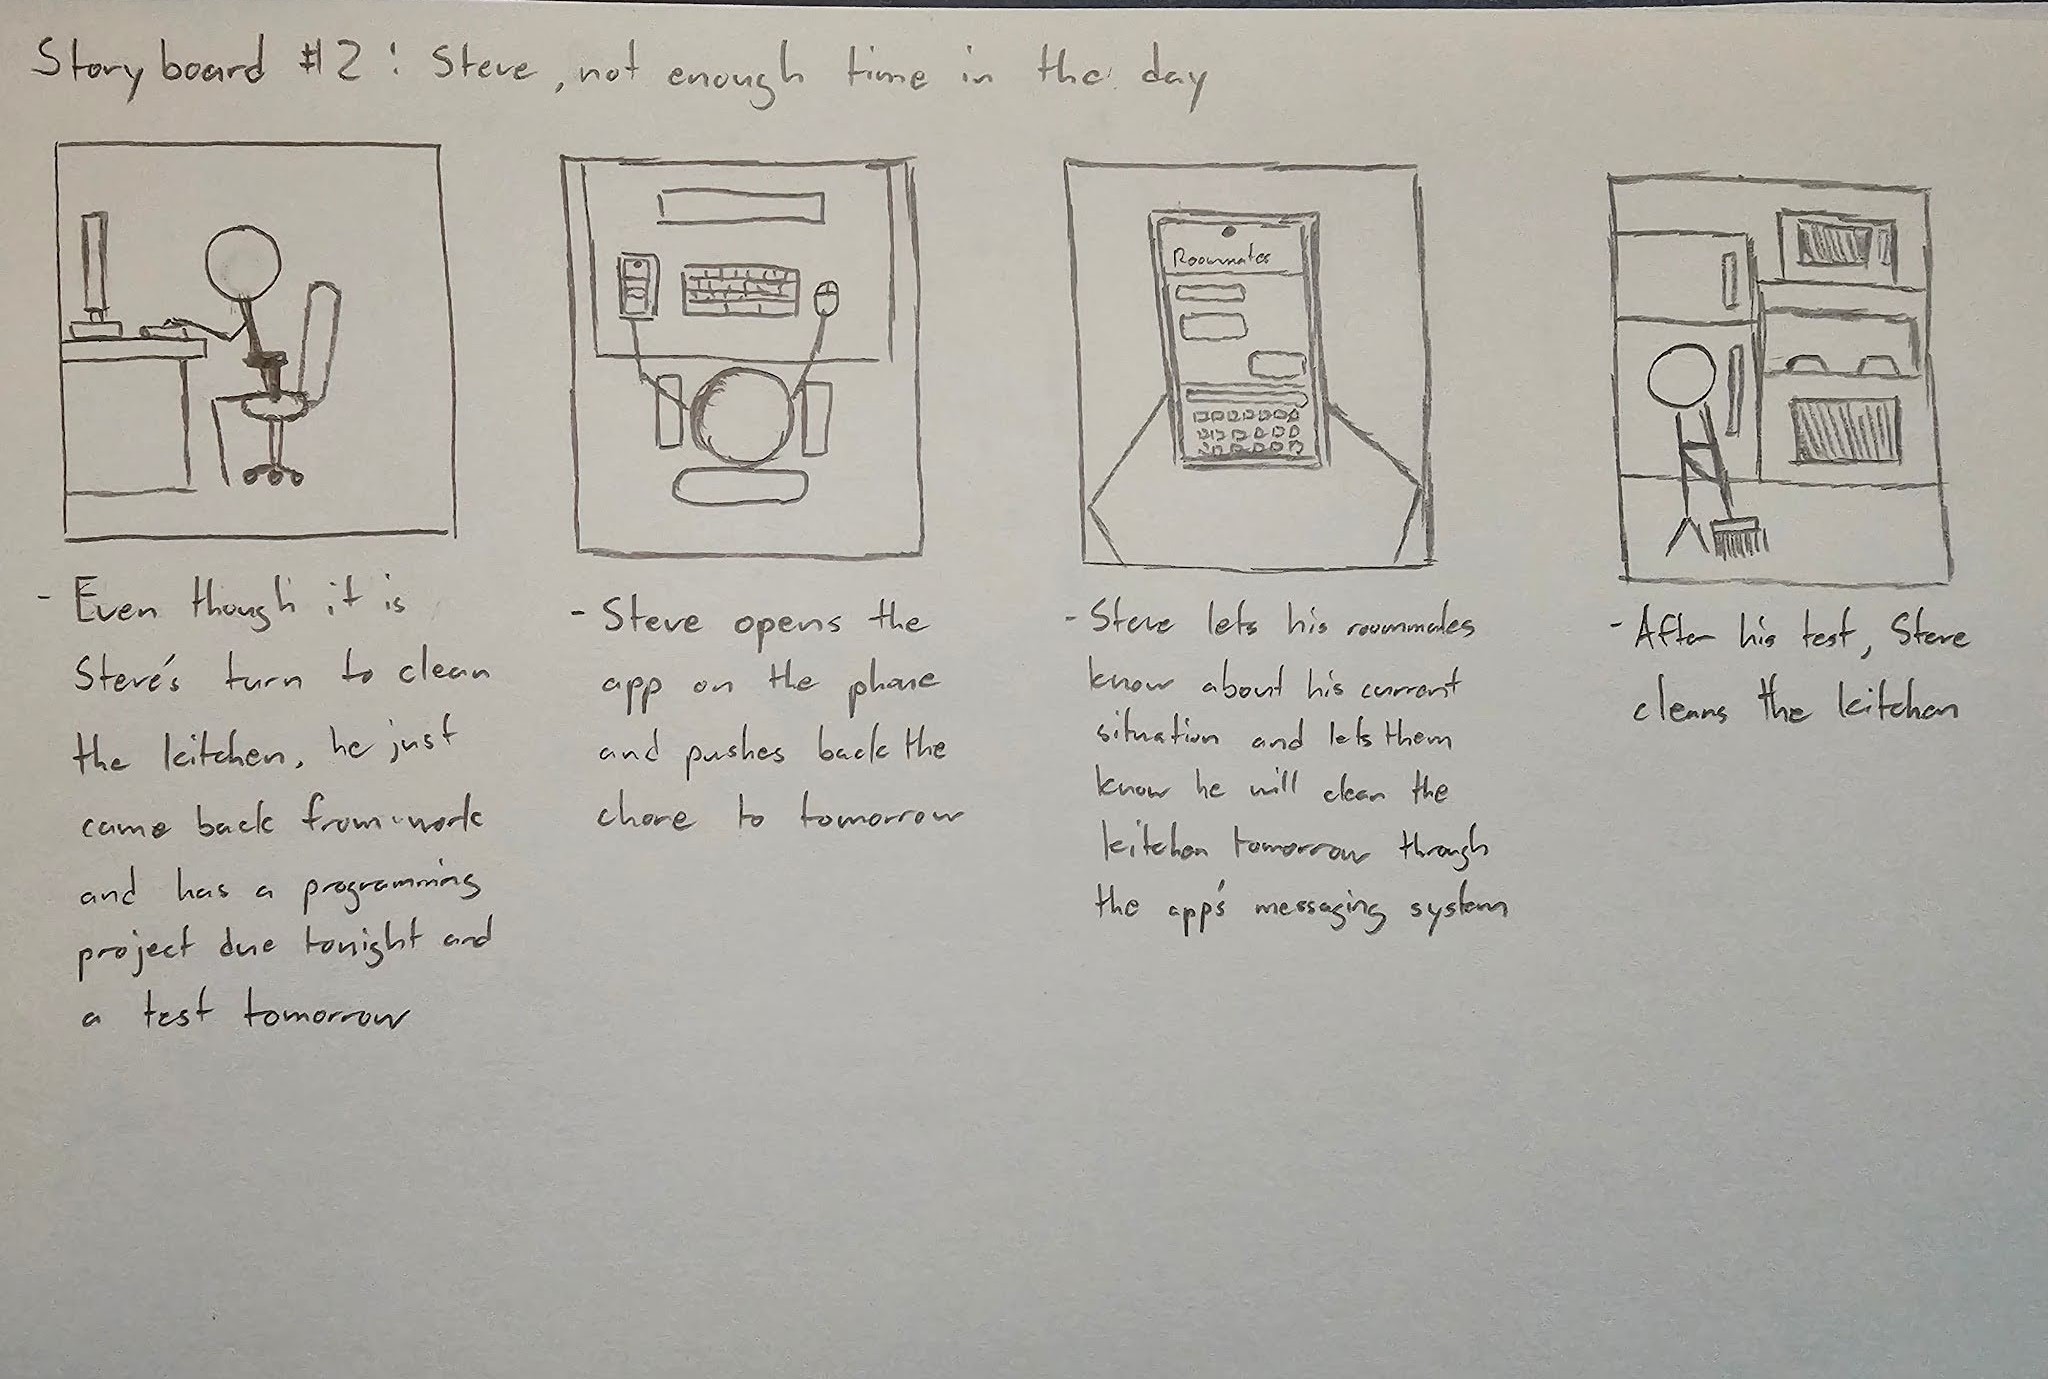 Storyboard #2: Steve, not enough time in the day
Roommates
- Even though it is
Steve's turn to clean
the kitchen, he just
came back from work
and has a programming
project due tonight and
a test tomorrow
- Steve opens the
app on the phone
and pushes back the
chore to tomorrow
- Steve lets his roommates
know about his current
situation and lets them
know he will clean the
kitchen tomorrow through
the app's messaging system
- After his test, Steve
cleans the kitchen